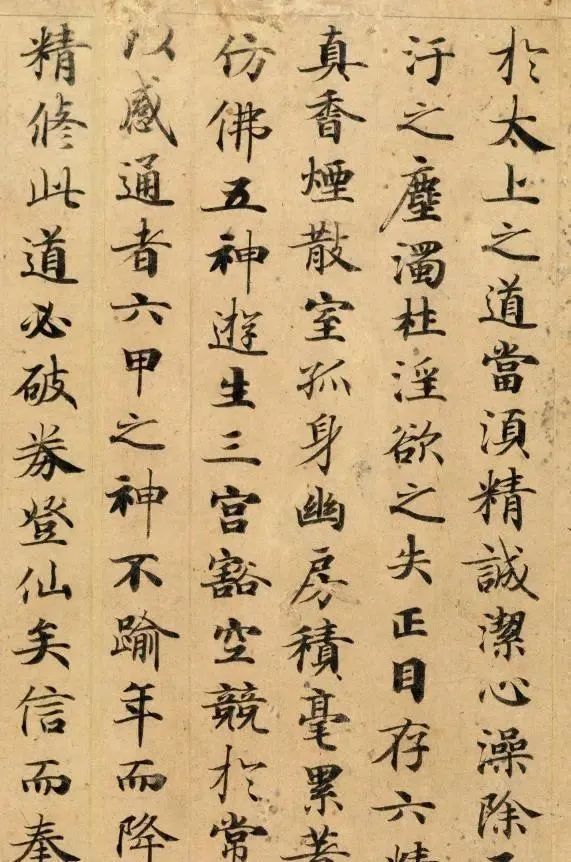 於太上之道當湏精誠潔心澡除
汙之塵濁杜淫欲之失正目存六精
真香煙散室孤身幽房積毫累著
仿佛五神遊生三宮豁空競於常
以感通者六甲之神不踰年而降
精修此道必破券登仙矣信而奉